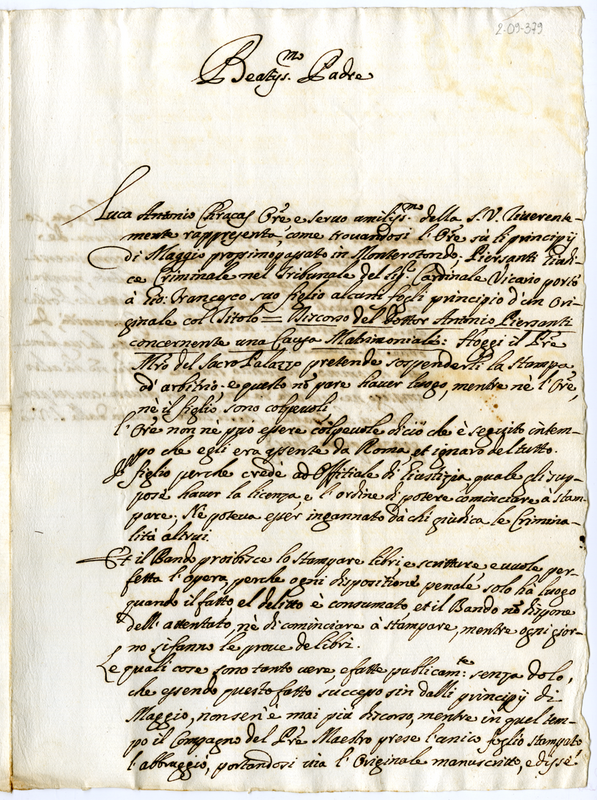 2-09-379
Beatiss.mo Padre
Luca Antonio Chracas Ore e servo umiliss.mo della S.V. riverente-
mente rappresenta, come trovandosi l'Ore sù li principij
di Maggio prossimo passato in Monterotondo. Piersanti Giudi-
ce Criminale nel Tribunale del Sig.r Cardinale Vicario portò
à Gio: Francesco suo figlio alcuni fogli principio d'un Ori-
ginale col Titolo = Discorso del Dottor Antonio Piersanti
concernente una Causa Matrimoniale: Hoggi il Pre
Mro del Sacro Palazzo pretende sospenderli la stampa
ad arbitrio, e questo nō pare haver luogo, mentre nè l'Ore,
nè il figlio sono colpevoli
L'Ore non nè può essere colpevole di ciò che è seguito in tem-
po che egli era assente da Roma et ignaro del tutto.
Il figlio perche crede ad Offitiale di Giustizia quale gli sup-
pose haver la licenza, e l'ordine di potere cominciare à stam-
pare; Nè poteva esser ingannato da chi giudica le Crimina-
lità altrui.
Et il Bando proibisce lo stampare libri e scritture e vuole per-
fetta l'opera, perche ogni disposizione penale solo hà luogo
quando il fatto, el delitto è consumato, et il Bando nō dispone
dell'attentato, nè di cominciare à stampare, mentre ogni gior-
no si fanno le prove de libri.
Le quali cose sono tanto vere, e fatte publicam.te: senza dolo,
che essendo questo fatto successo sin dalli principij di
Maggio, non sen'è mai più discorso, mentre in quel tem-
po il Compagno del Pre Maestro prese l'unico foglio stampato
l'abbruggiò, portandosi via l'Originale manuscritto, e disse